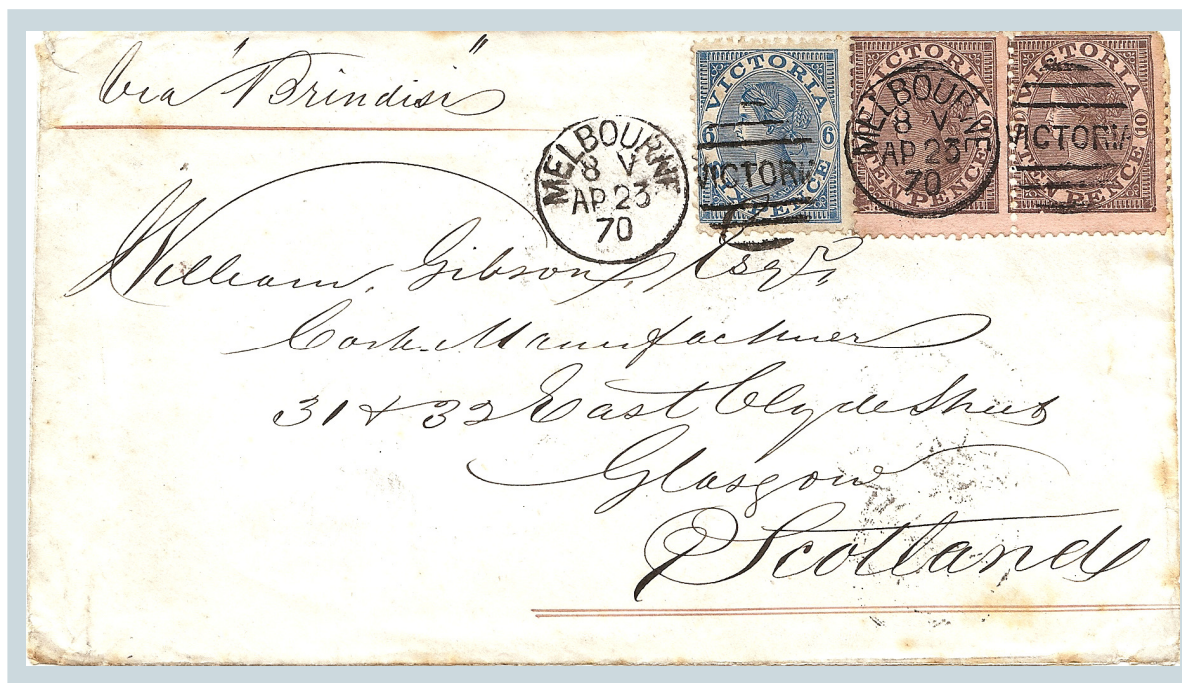 Via "Brindisi"
VICTORIA
6 6
PENCE
VICTORIA
TEN PENCE
VICTORIA
10
TEN PENCE
MELBOURNE
8 V
AP 23
70
VICTORIA
MELBOURNE
8 V
AP 23
70
VICTORIA
William Gibson, Esqr,
Cork Manufacturer
31 & 32 East Clyde Street
Glasgow
Scotland